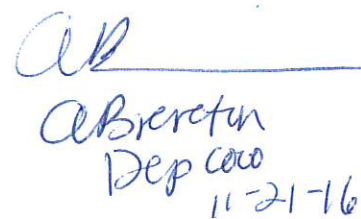 AB
ABrereton
Dep COO
11-21-16